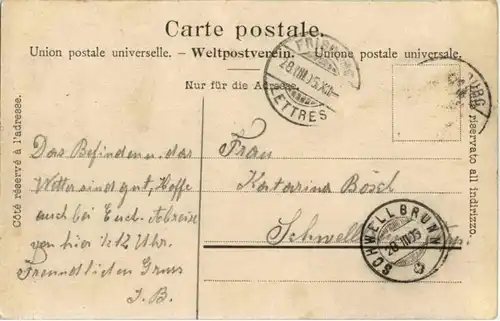 Carte postale.
Union postale universelle. – Weltpostverein. – Unione postale universale.
Nur für die Adresse.
Côté réservé à l'adresse.
riservato all indirizzo.
LETTRES
28.III.05.XII
Das Befinden u. das
Wetter sind gut, Hoffe
auch bei Euch. Abreise
von hier 1/2 12 Uhr.
Freundlichen Gruss
J. B.
Frau
Katarina Bösch
Schwellbrunn
SCHWELLBRUNN
28.III.05